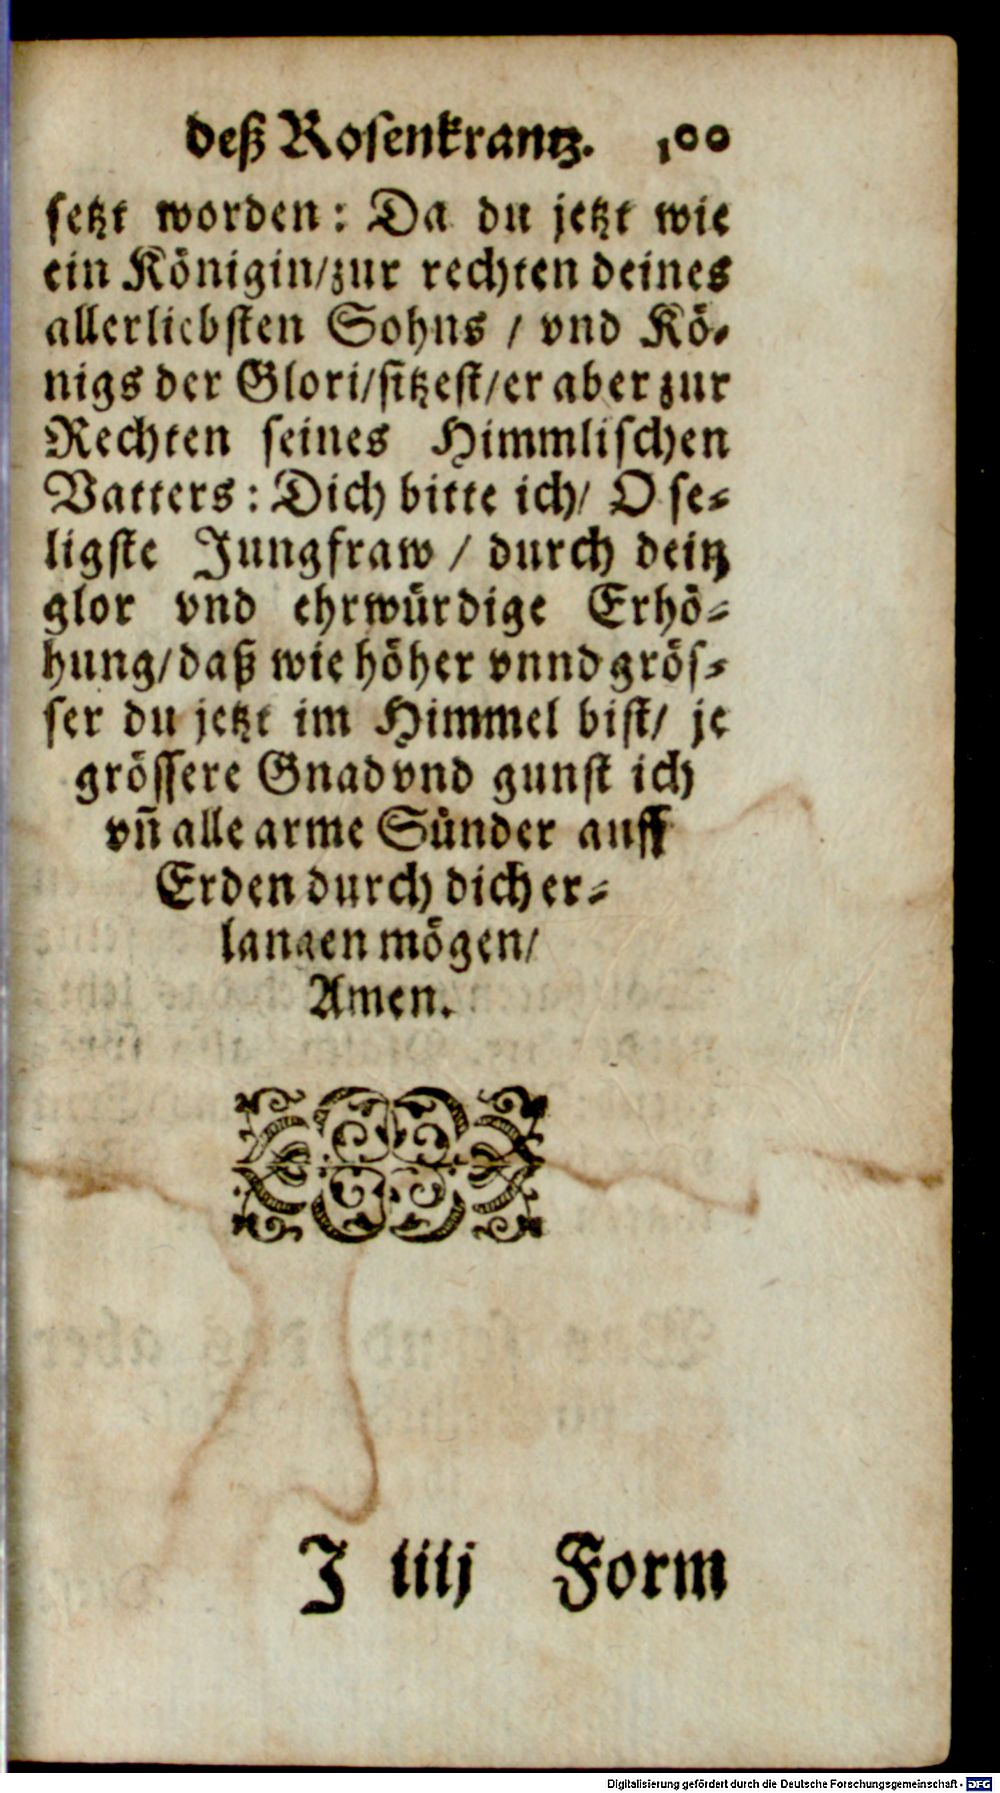 deß Rosenkrantz. 100
setzt worden: Da du jetzt wie
ein Königin/zur rechten deines
allerliebsten Sohns / vnd Kö-
nigs der Glori/sitzest/er aber zur
Rechten seines Himmlischen
Vatters: Dich bitte ich/ O se-
ligste Jungfraw / durch dein
glor vnd ehrwürdige Erhö-
hung/daß wie höher vnnd grös-
ser du jetzt im Himmel bist/ je
grössere Gnad vnd gunst ich
vñ alle arme Sünder auff
Erden durch dich er-
langen mögen/
Amen.
J iiij Form
Digitalisierung gefördert durch die Deutsche Forschungsgemeinschaft - DFG